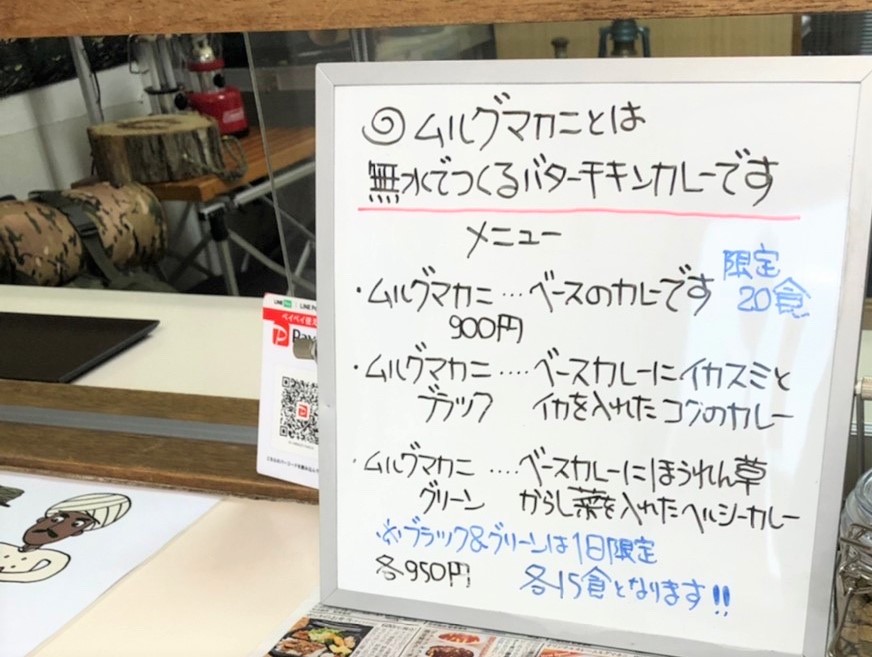 ムルグマカニとは
無水でつくるバターチキンカレーです
メニュー
限定
20食
・ムルグマカニ…ベースのカレーです
900円
・ムルグマカニ‥‥ベースカレーにイカスミと
ブラック イカを入れたコクのカレー
・ムルグマカニ‥‥ベースカレーにほうれん草
グリーン からし菜を入れたヘルシーカレー
※ブラック&グリーンは1日限定
各950円 各15食となります!!
LINE Pay LINE
Pay